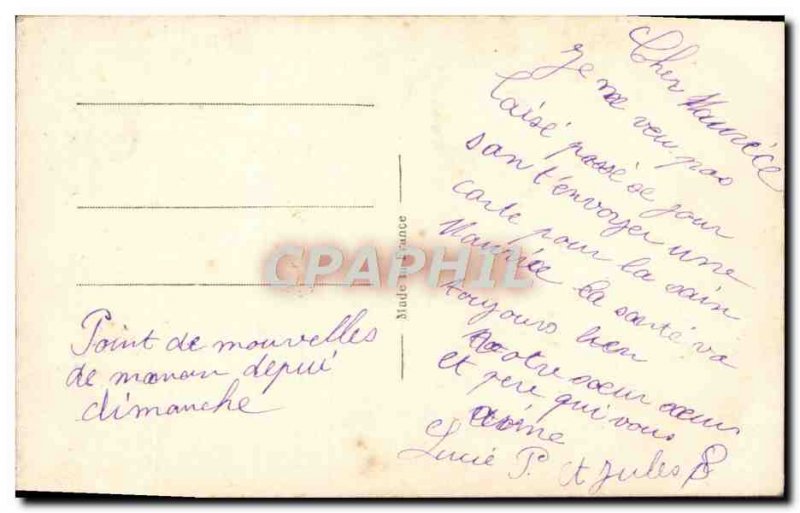 Point de mouvelles
de manan depui
dimanche
Made in France
CPAPHIL
Cher Maurice
Je ne veu pas
laisé passé se jour
san t'envoyer une
carte pour la sain
Maurice la santé va
toujours bien
votre sœur
et frere qui vous
aime
Lucie P. et Jules P